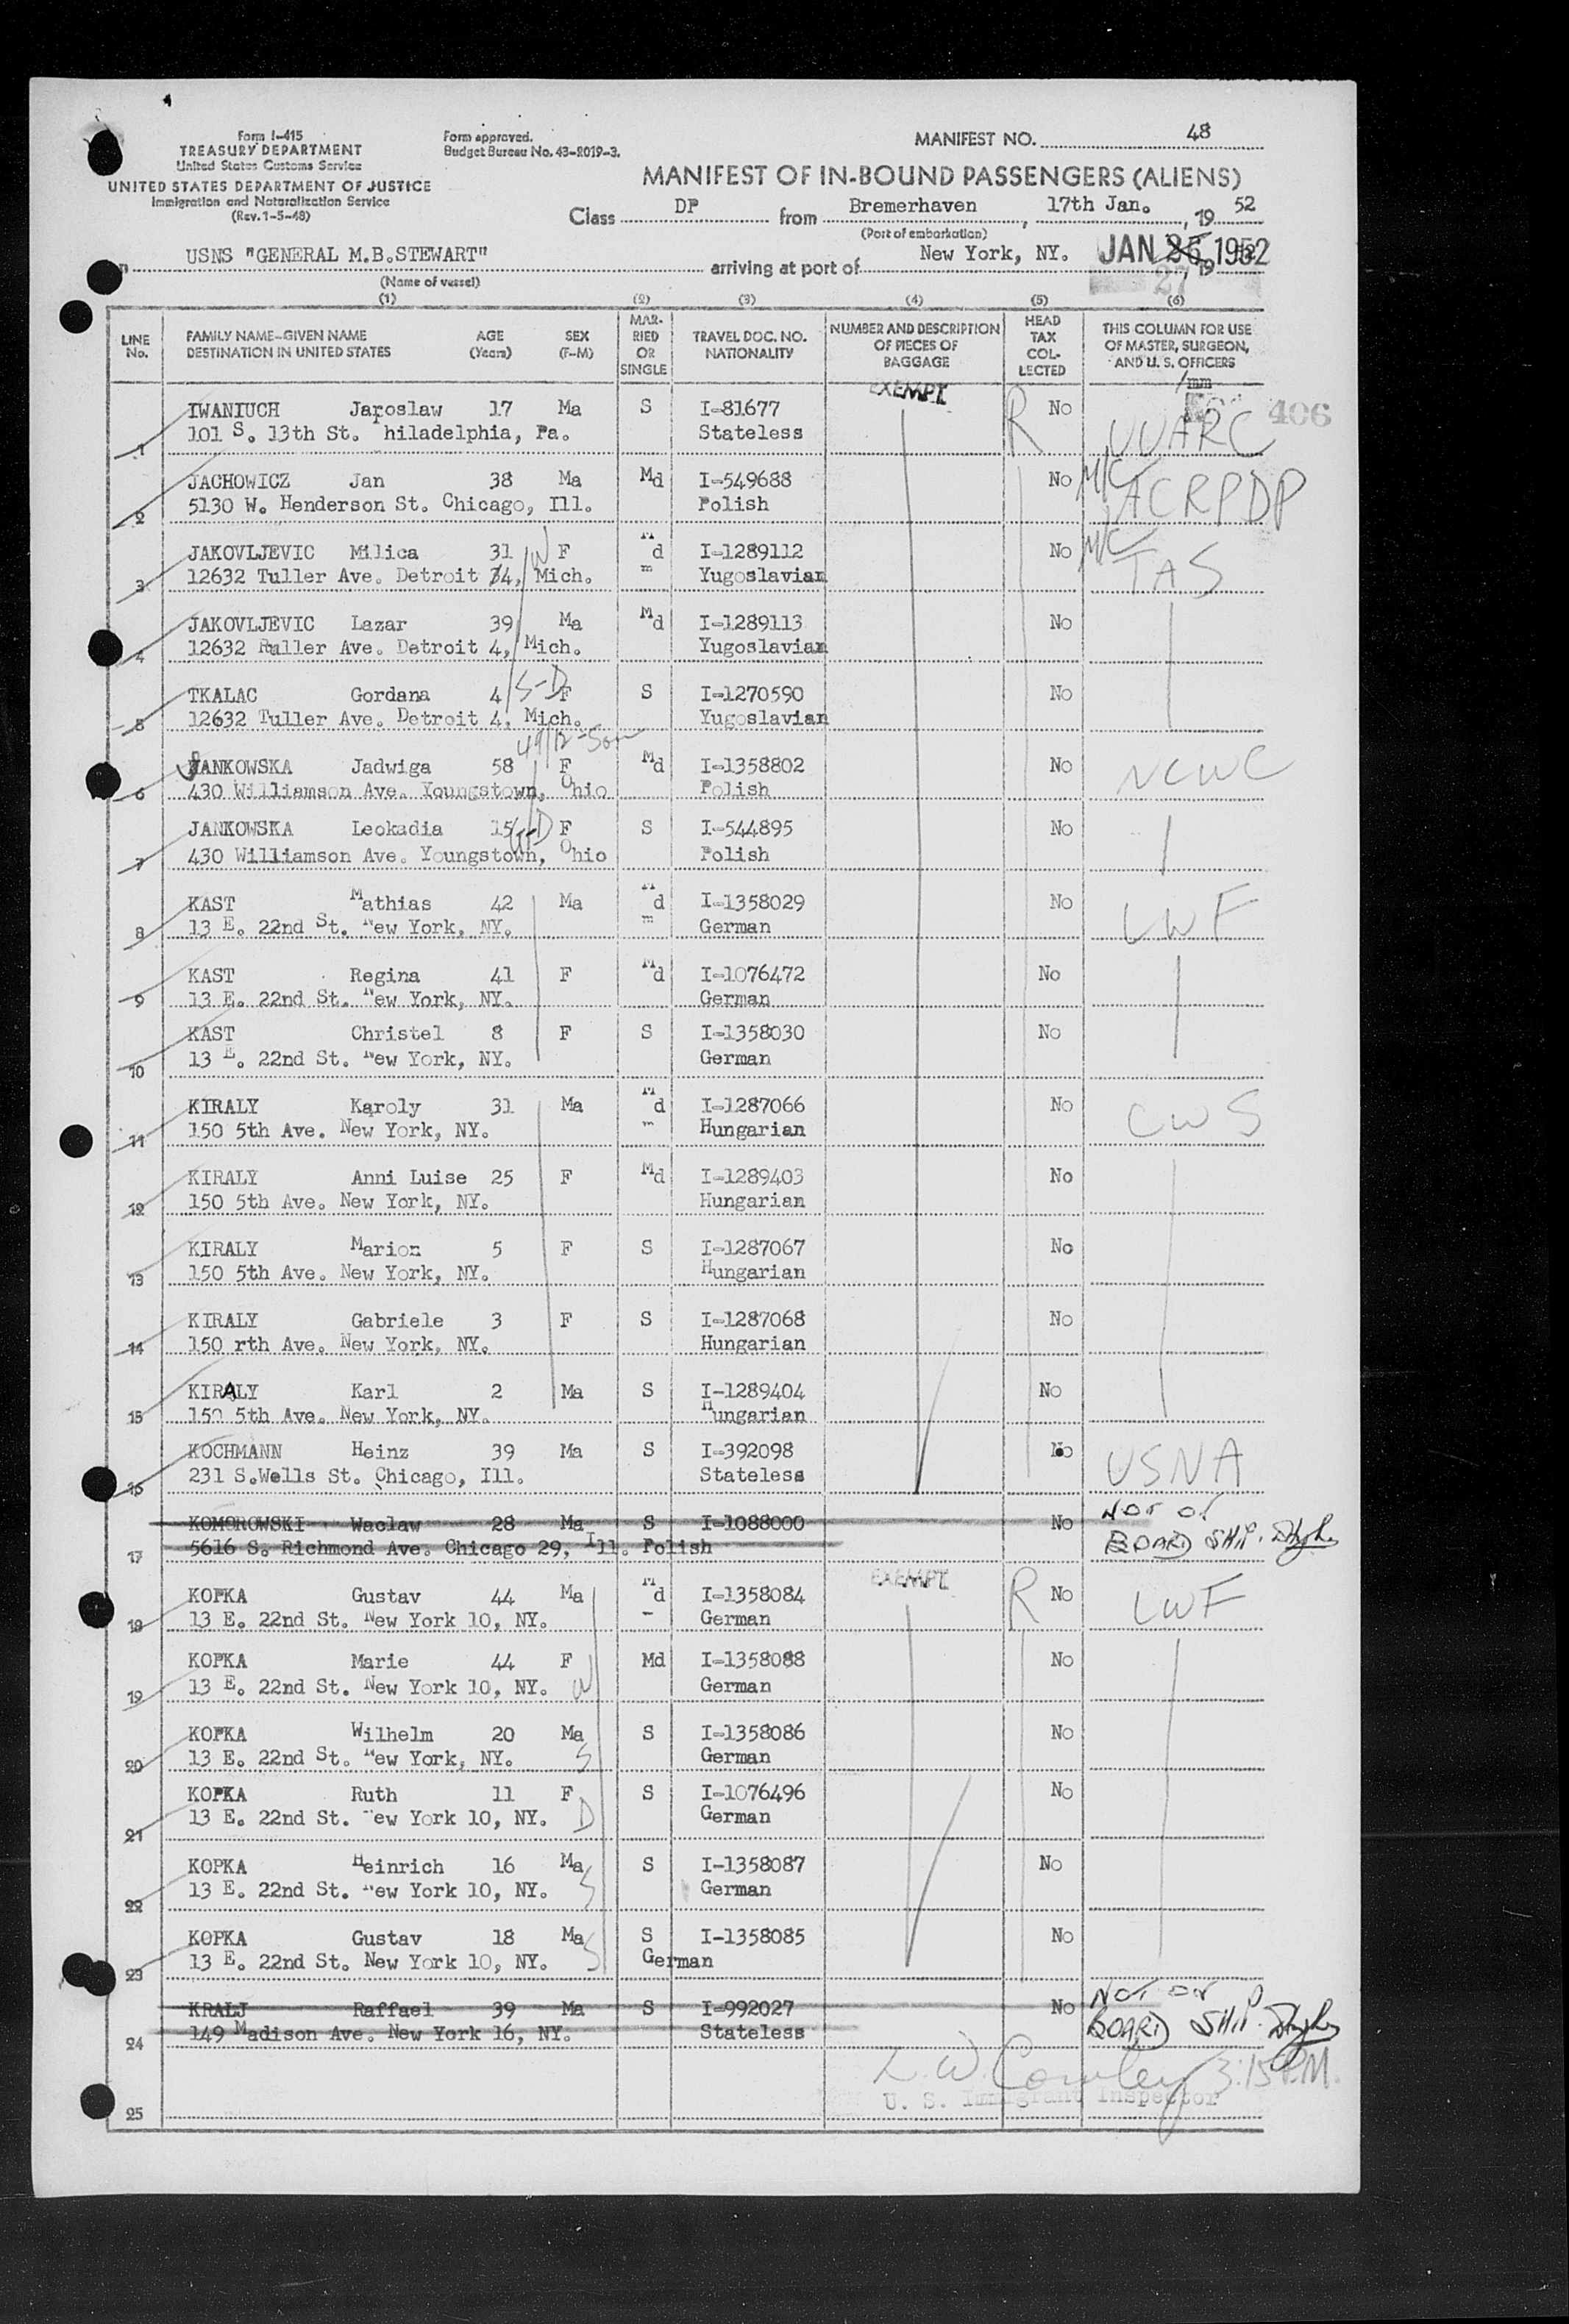 Form I-415
TREASURY DEPARTMENT
United States Customs Service
UNITED STATES DEPARTMENT OF JUSTICE
Immigration and Naturalization Service
(Rev. 1-5-48)
Form approved.
Budget Bureau No. 43-R019-3.
MANIFEST NO. 48
MANIFEST OF IN-BOUND PASSENGERS (ALIENS)
Class DP from Bremerhaven, 17th Jan., 19 52
(Port of embarkation)
USNS "GENERAL M.B.STEWART" arriving at port of New York, NY. JAN 26 1952
27
, 19
(Name of vessel)
(1) (2) (3) (4) (5) (6)
LINE No. FAMILY NAME-GIVEN NAME DESTINATION IN UNITED STATES AGE (Years) SEX (F-M) MAR-RIED OR SINGLE TRAVEL DOC. NO. NATIONALITY NUMBER AND DESCRIPTION OF PIECES OF BAGGAGE HEAD TAX COL-LECTED THIS COLUMN FOR USE OF MASTER, SURGEON, AND U. S. OFFICERS
EXEMPT
IWANIUCH Jaroslaw 17 Ma S I-81677 R No 406
1 101 S. 13th St. Philadelphia, Pa. Stateless UUARC
JACHOWICZ Jan 38 Ma Md I-549688 No M/C
2 5130 W. Henderson St. Chicago, Ill. Polish ACRPDP
JAKOVLJEVIC Milica 31 W F Md I-1289112 No M/C
3 12632 Tuller Ave. Detroit 4, Mich. Yugoslavian TAS
JAKOVLJEVIC Lazar 39 Ma Md I-1289113 No
4 12632 Ruller Ave. Detroit 4, Mich. Yugoslavian
TKALAC Gordana 4 S-D F S I-1270590 No
5 12632 Tuller Ave. Detroit 4, Mich. Yugoslavian
JANKOWSKA Jadwiga 58 F Md I-1358802 No NCWC
6 430 Williamson Ave. Youngstown, Ohio Polish
JANKOWSKA Leokadia 15 F S I-544895 No
7 430 Williamson Ave. Youngstown, Ohio Polish
KAST Mathias 42 Ma Md I-1358029 No LWF
8 13 E. 22nd St. New York, NY. German
KAST Regina 41 F Md I-1076472 No
9 13 E. 22nd St. New York, NY. German
KAST Christel 8 F S I-1358030 No
10 13 E. 22nd St. New York, NY. German
KIRALY Karoly 31 Ma Md I-1287066 No CWS
11 150 5th Ave. New York, NY. Hungarian
KIRALY Anni Luise 25 F Md I-1289403 No
12 150 5th Ave. New York, NY. Hungarian
KIRALY Marion 5 F S I-1287067 No
13 150 5th Ave. New York, NY. Hungarian
KIRALY Gabriele 3 F S I-1287068 No
14 150 rth Ave. New York, NY. Hungarian
KIRALY Karl 2 Ma S I-1289404 No
15 150 5th Ave. New York, NY. Hungarian
KOCHMANN Heinz 39 Ma S I-392098 No USNA
16 231 S.Wells St. Chicago, Ill. Stateless
KOMOROWSKI Waclaw 28 Ma S I-1088000 No NOT ON
17 5616 S. Richmond Ave. Chicago 29, Ill. Polish BOARD SHIP.
EXEMPT
KOPKA Gustav 44 Ma Md I-1358084 R No LWF
18 13 E. 22nd St. New York 10, NY. German
KOPKA Marie 44 F Md I-1358088 No
19 13 E. 22nd St. New York 10, NY. W German
KOPKA Wilhelm 20 Ma S I-1358086 No
20 13 E. 22nd St. New York, NY. S German
KOPKA Ruth 11 F S I-1076496 No
21 13 E. 22nd St. New York 10, NY. D German
KOPKA Heinrich 16 Ma S I-1358087 No
22 13 E. 22nd St. New York 10, NY. S German
KOPKA Gustav 18 Ma S I-1358085 No
23 13 E. 22nd St. New York 10, NY. S German
KRALJ Raffael 39 Ma S I-992027 No NOT ON
24 149 Madison Ave. New York 16, NY. Stateless BOARD SHIP.
L. W. Cowley 3:15 P.M.
25 U. S. Immigrant Inspector